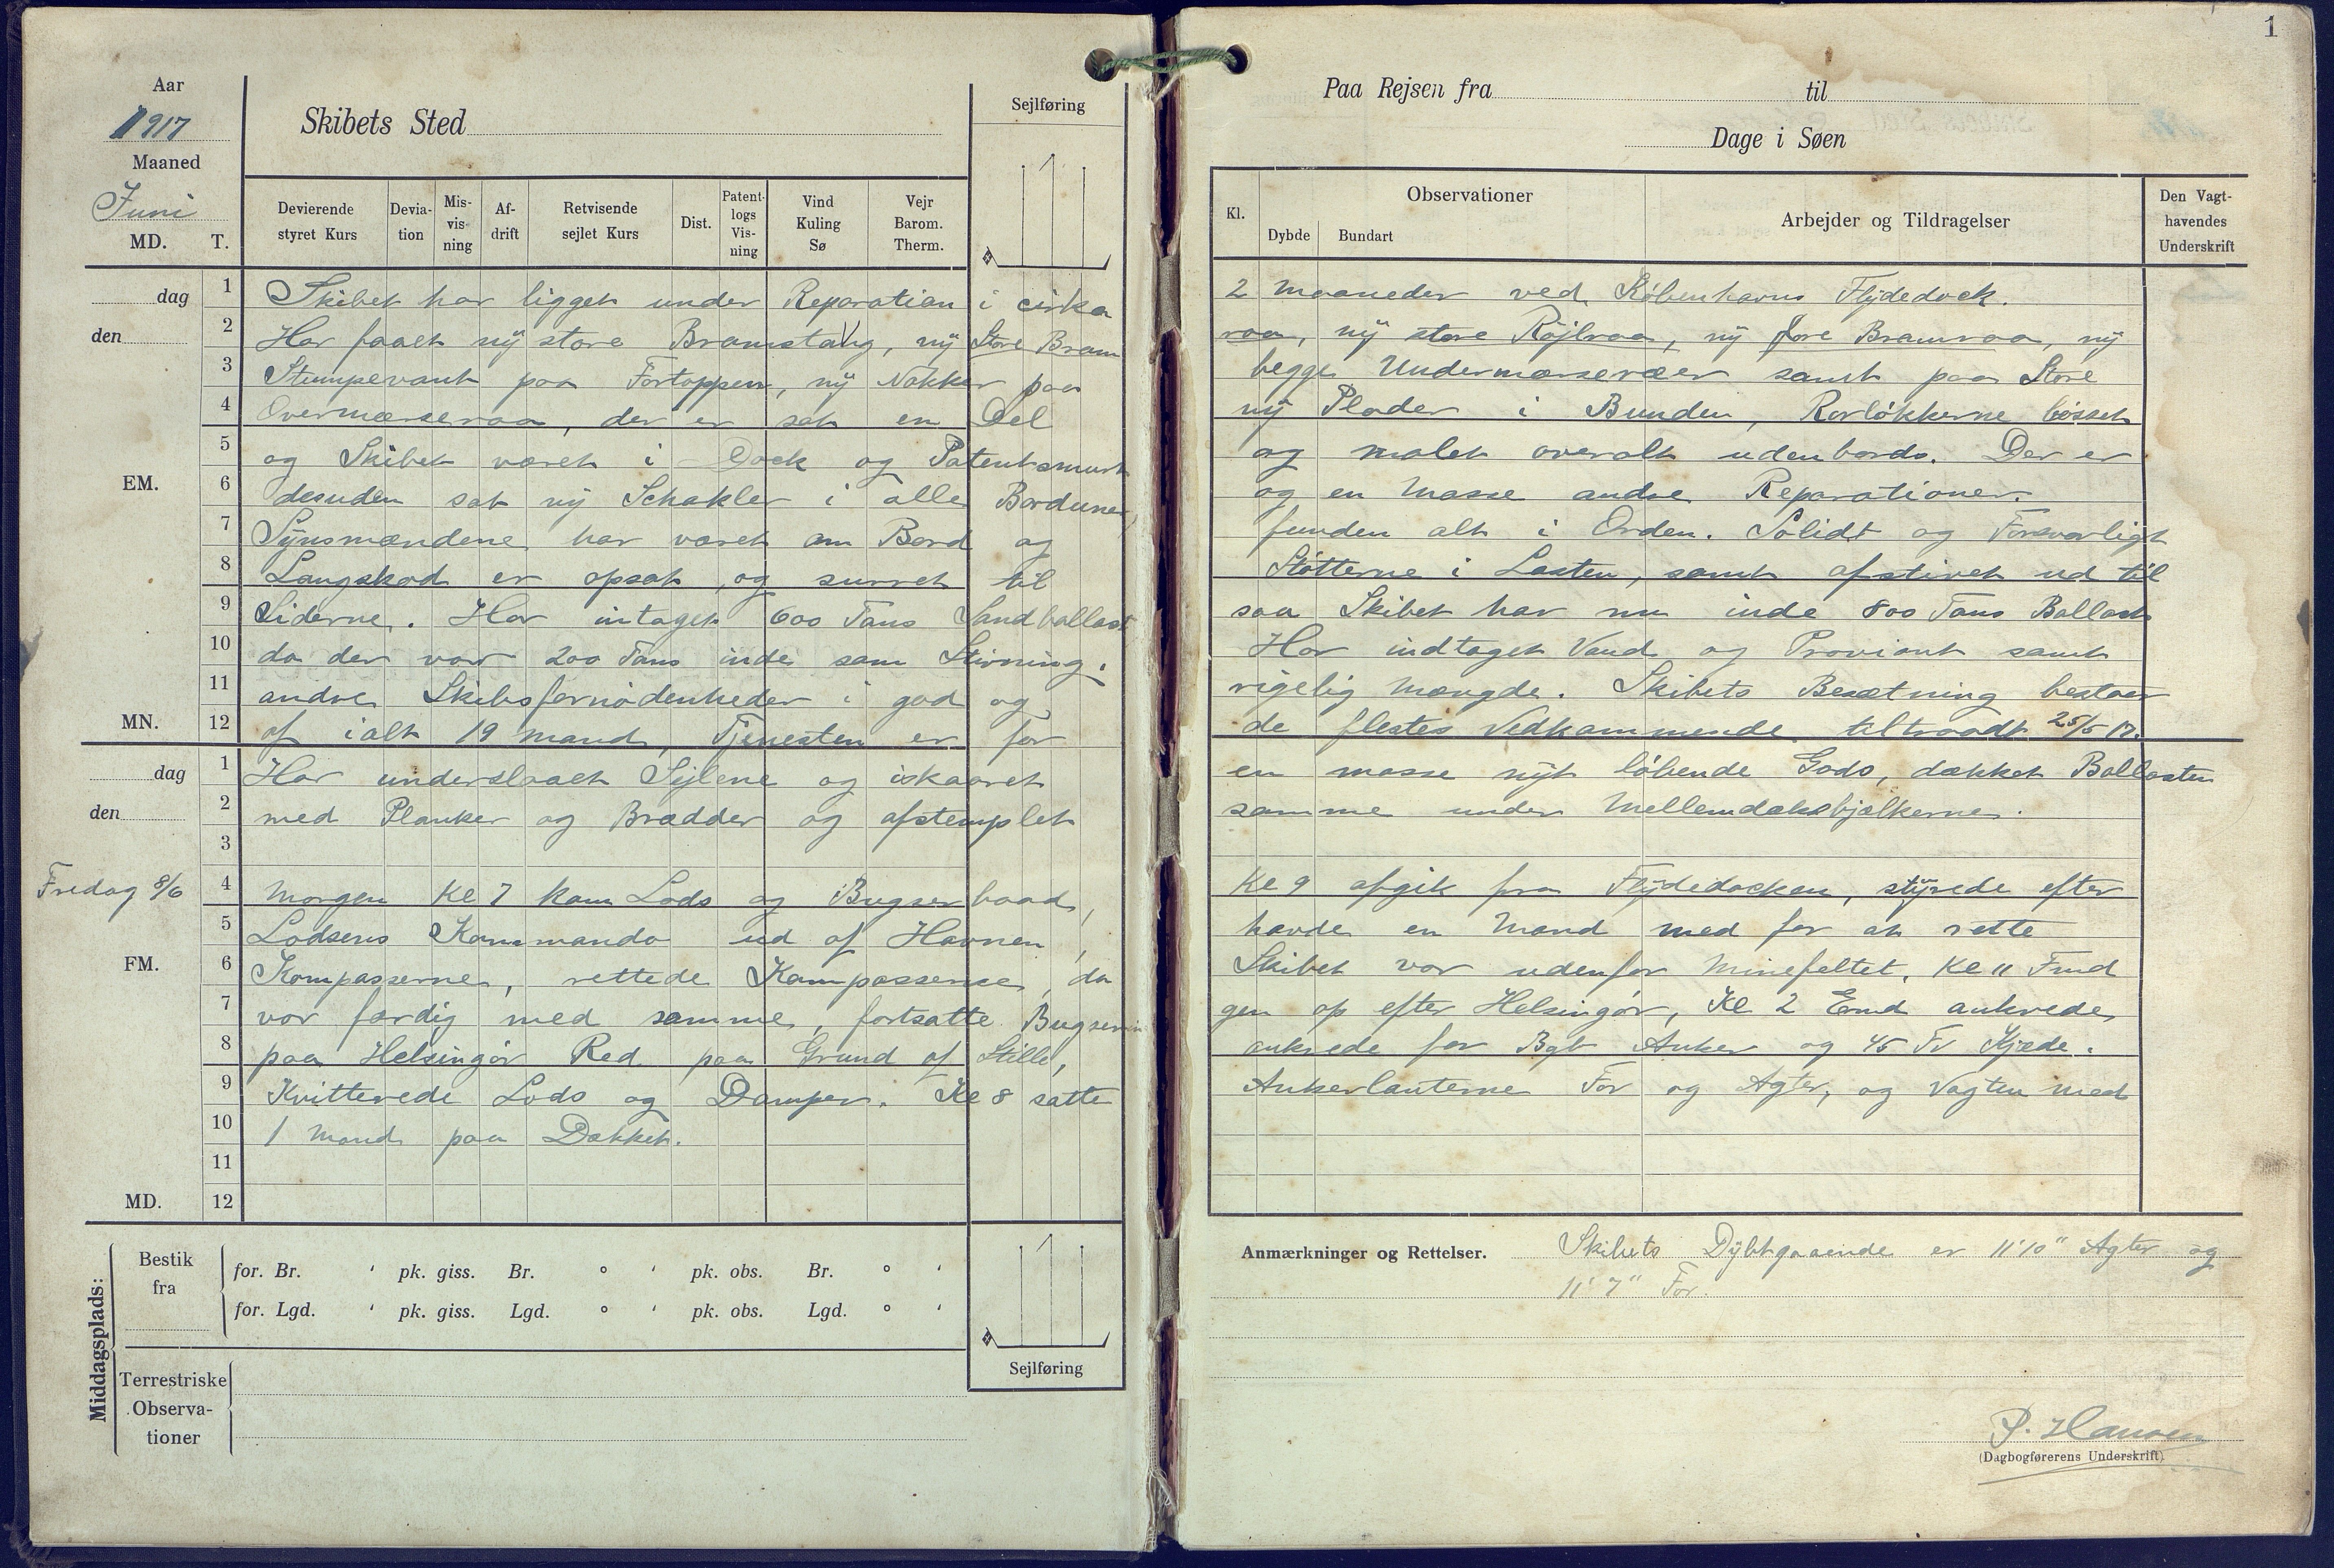 1
Aar
1917
Maaned
Juni
MD. T.
Skibets Sted
Sejlføring
Devierende styret Kurs
Deviation
Misvisning
Afdrift
Retvisende sejlet Kurs
Dist.
Patentlogs Visning
Vind Kuling Sø
Vejr Barom. Therm.
Paa Rejsen fra til
Dage i Søen
Kl.
Observationer
Dybde Bundart
Arbejder og Tildragelser
Den Vagthavendes Underskrift
dag
den
1 Skibet har ligget under Reparation i cirka 2 Maaneder ved Københavns Flydedock.
2 Har faaet ny store Bramstang, ny Store Bramraa, ny store Röjlraa, ny fore Bramraa, ny
3 Stumpevant paa Fortoppen, ny Nokker paa begge Undermærseræer samt paa Store
4 Overmærseraa, der er sat en Del ny Plader i Bunden, Rorløkkerne bösset
EM.
5 og Skibet været i Dock og Patentsmurt og malet overalt udenbords. Der er
6 desuden sat ny Schakler i alle Barduner, og en Masse andre Reparationer.
7 Synsmændene har været om Bord og funden alt i Orden. Solidt og Forsvarligt
8 Langskod er opsat, og surret til Støtterne i Lasten, samt afstivet ud til
9 Siderne. Har intaget 600 Tons Sandballast saa Skibet har nu inde 800 Tons Ballast
10 da der var 200 Tons inde som Stivning. Har indtaget Vand og Proviant samt
11 andre Skibsfornödenheder i god og rigelig Mængde. Skibets Besætning bestaar
MN.
12 af ialt 19 Mand, Tjenesten er for de flestes Vedkommende tiltraadt 25/5 17.
dag
den
1 Har underslaaet Sejlene og iskaaret en masse nyt löbende Gods, dækket Ballasten
2 med Planker og Brædder og afstemplet samme under Mellemdæksbjælkerne.
3
Fredag 8/6
4 Morgen Kl 7 kom Lods og Bugserbaad, Kl 9 afgik fra Flydedocken, styrede efter
5 Lodsens Kommando ud af Havnen, havde en Mand med for at rette
FM.
6 Kompasserne, rettede Kompasserne, da Skibet var udenfor Minefeltet, Kl 11 Fmd
7 var færdig med samme, fortsatte Bugseringen op efter Helsingör, Kl 2 Emd ankrede
8 paa Helsingör Red paa Grund af Stille, ankrede for Bgb Anker og 45 Fv Kjæde.
9 Kvitterede Lods og Damper. Kl 8 satte Ankerlanterne For og Agter, og Vagten med
10 1 Mand paa Dækket.
11
MD.
12
Middagsplads:
Bestik fra
for. Br. ' pk. giss. Br. ° ' pk. obs. Br. ° '
for. Lgd. ' pk. giss. Lgd. ° ' pk. obs. Lgd. ° '
Sejlføring
Terrestriske Observationer
Anmærkninger og Rettelser. Skibets Dybtgaaende er 11'10" Agter og
11'7" For.
P. Hansen
(Dagbogførerens Underskrift)